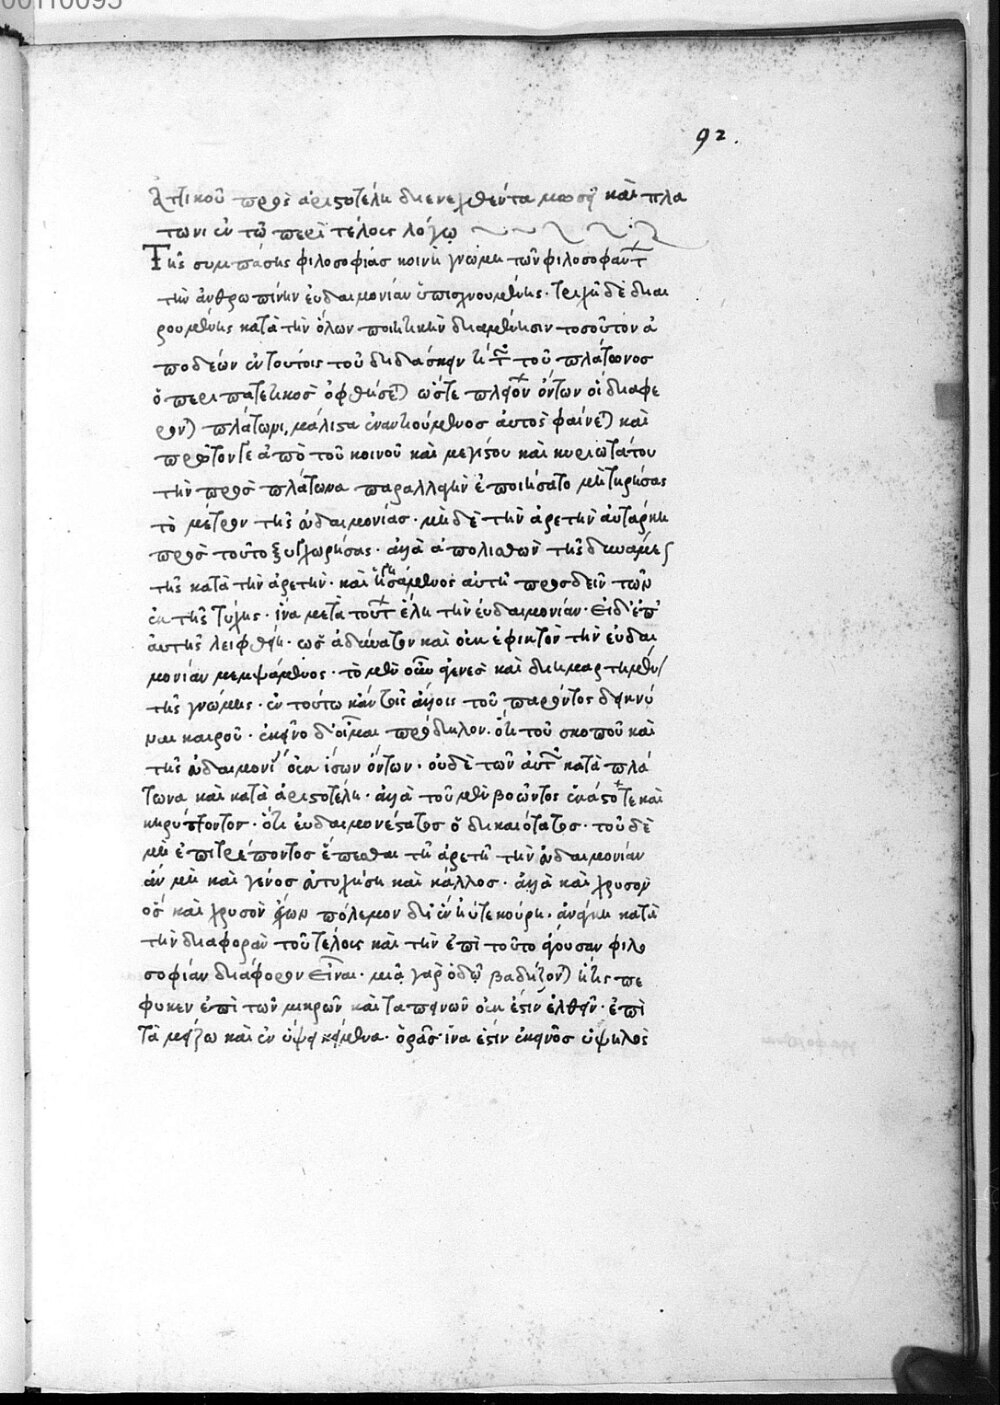 00110095
92.
Ἀττικοῦ πρὸς ἀριστοτέλη διενεχθέντα μωσῇ καὶ πλά
τωνι ἐν τῷ περὶ τέλους λόγῳ
Τῆς συμπάσης φιλοσοφίας κοινῇ γνώμῃ τῶν φιλοσοφούντων
τὴν ἀνθρωπίνην εὐδαιμονίαν ὑπισχνουμένης. τριχῆ δὲ διαι
ρουμένης κατὰ τὴν ὅλων ποιητικὴν διανέμησιν τοσοῦτον ἀ
ποδέων ἐν τούτοις τοῦ διδάσκειν τι τῶν τοῦ πλάτωνος
ὁ περιπατητικὸς ὀφθήσεται ὥστε πλειόνων ὄντων οἳ διαφέ
ρονται πλάτωνι, μάλιστα ἐναντιούμενος αὐτὸς φαίνεται καὶ
πρῶτόν γε ἀπὸ τοῦ κοινοῦ καὶ μεγίστου καὶ κυριωτάτου
τὴν πρὸς πλάτωνα παραλλαγὴν ἐποιήσατο μὴ τηρήσας
τὸ μέτρον τῆς εὐδαιμονίας. μηδὲ τὴν ἀρετὴν αὐτάρκη
πρὸς τοῦτο ξυγχωρήσας. ἀλλὰ ἀπολισθὼν τῆς δυνάμεως
τῆς κατὰ τὴν ἀρετήν. καὶ ἡγησάμενος αὐτῇ προσδεῖν τῶν
ἐκ τῆς τύχης. ἵνα μετὰ τούτων ἕλῃ τὴν εὐδαιμονίαν. εἰ δ' ἐπ'
αὐτῆς λειφθείη. ὡς ἀδύνατον καὶ οὐκ ἐφικτὸν τὴν εὐδαι
μονίαν μεμψάμενος. τὸ μὲν οὖν ἀγενὲς καὶ διημαρτημένον
τῆς γνώμης. ἐν τούτῳ κἀν τοῖς ἄλλοις τοῦ παρόντος δεικνύ
ναι καιροῦ. ἐκεῖνο δ' οἶμαι πρόδηλον. ὅτι τοῦ σκοποῦ καὶ
τῆς εὐδαιμονίας οὐκ ἴσων ὄντων. οὐδὲ τῶν αὐτῶν κατὰ πλά
τωνα καὶ κατὰ ἀριστοτέλη. ἀλλὰ τοῦ μὲν βοῶντος ἑκάστοτε καὶ
κηρύττοντος. ὅτι εὐδαιμονέστατος ὁ δικαιότατος. τοῦ δὲ
μὴ ἐπιτρέποντος ἕπεσθαι τῇ ἀρετῇ τὴν εὐδαιμονίαν
ἂν μὴ καὶ γένος εὐτυχήσῃ καὶ κάλλος. ἀλλὰ καὶ χρυσὸν
ὃς καὶ χρυσὸν ἔχων πόλεμον δὲ ἴεν ἠύτε κούρη. ἀνάγκη κατὰ
τὴν διαφορὰν τοῦ τέλους καὶ τὴν ἐπὶ τοῦτο ἄγουσαν φιλο
σοφίαν διάφορον εἶναι. μιᾷ γὰρ ὁδῷ βαδίζονται ἥτις πέ
φυκεν ἐπὶ τῶν μικρῶν καὶ ταπεινῶν οὐκ ἔστιν ἐλθεῖν. ἐπὶ
τὰ μείζω καὶ ἐν ὕψει κείμενα. ὁρᾷς ἵνα ἐστὶν ἐκεῖνος ὑψηλὸς